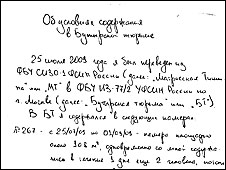 Об условиях содержания
в Бутырской тюрьме
25 июля 2009 года я был переведен из
ФБУ СИЗО-1 ФСИН России (далее: „Матросская Тиши-
на" или „МТ" в ФБУ ИЗ-77/2 УФСИН России по
г. Москве (далее: „Бутырская тюрьма" или „БТ").
В БТ я содержался в следующих камерах
№267 - с 25/07/09 по 01/09/09 - камера площадью
около 10,8 м², одновременно со мной содер-
жались в течение 1 дня еще 2 человека, потом